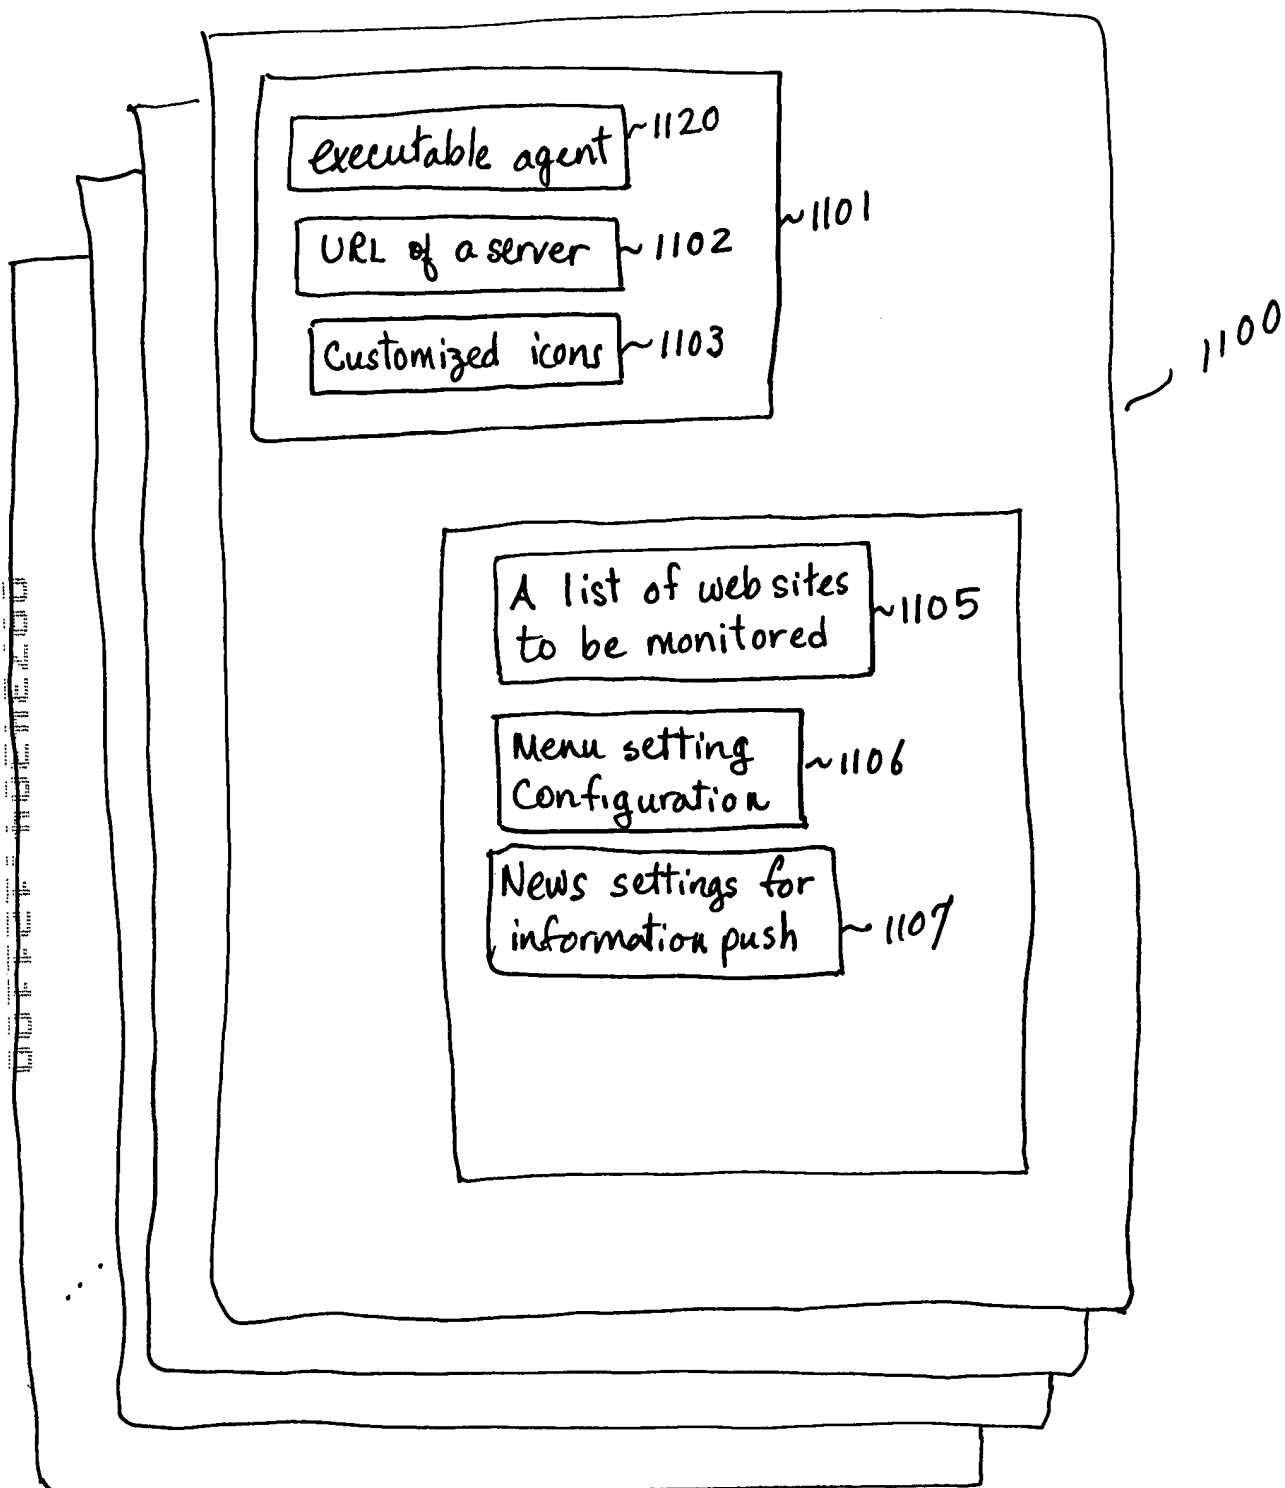 executable agent
~1120
URL of a server
~1102
Customized icons
~1103
~1101
1100
A list of web sites
to be monitored
~1105
Menu setting
Configuration
~1106
News settings for
information push
~1107